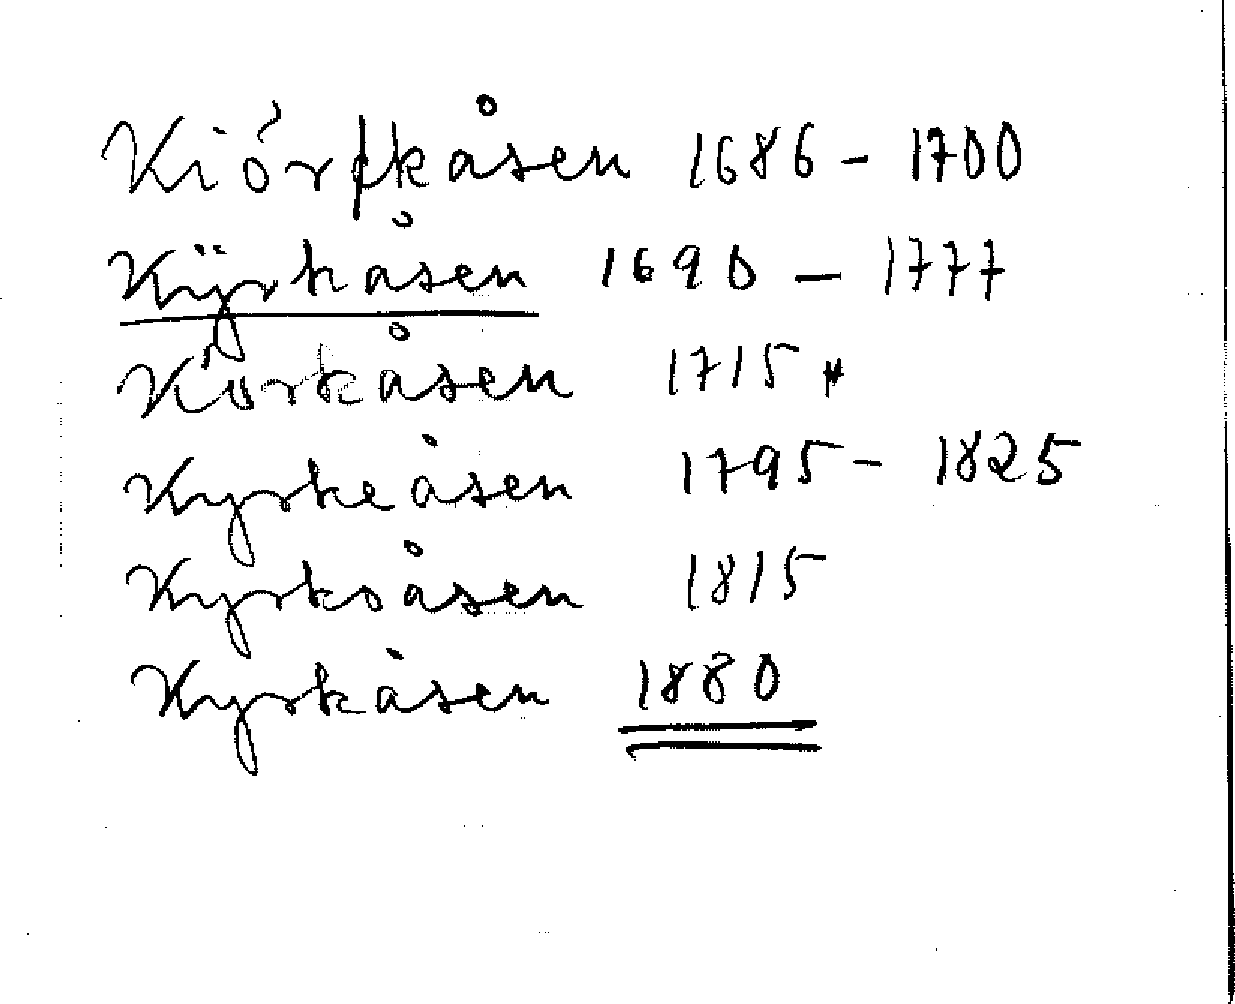 Kiörkåsen 1686 - 1700
Kÿrkåsen 1690 - 1777
Körkåsen 1715
Kyrkeåsen 1795 - 1825
Kyrkoåsen 1815
Kyrkåsen 1880